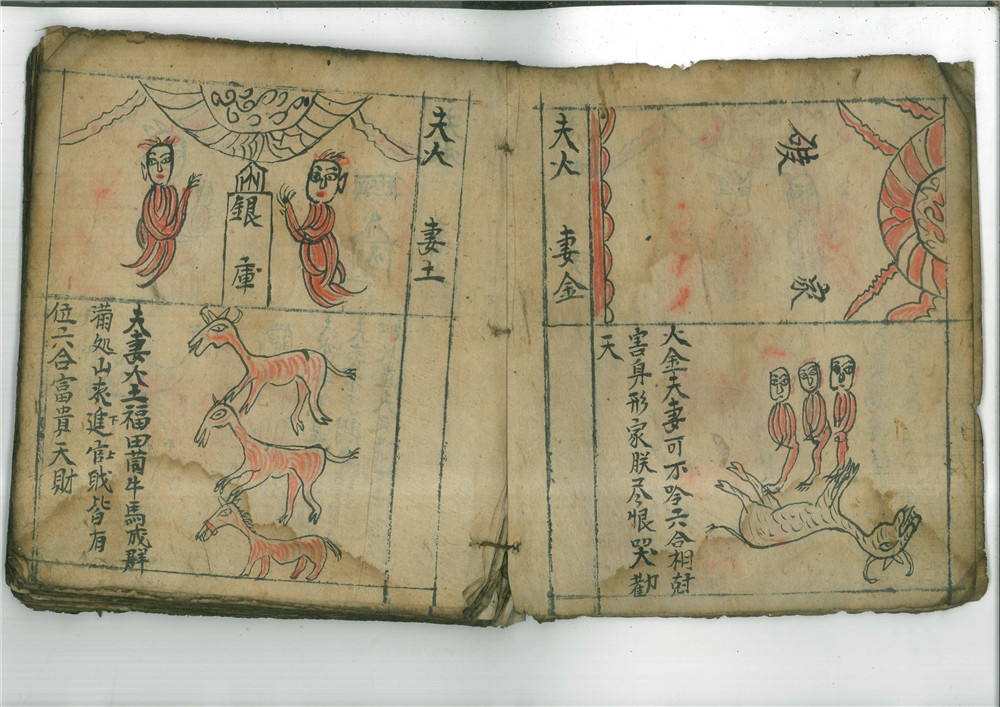 破家
夫火 妻金
火金夫妻可不吟六合相尅
害身形家朕尽恨哭勸
天
夫火 妻土
銀庫
夫妻火土福田茴牛馬成群
滿処山來進下官上戝皆有
位六合富貴天財